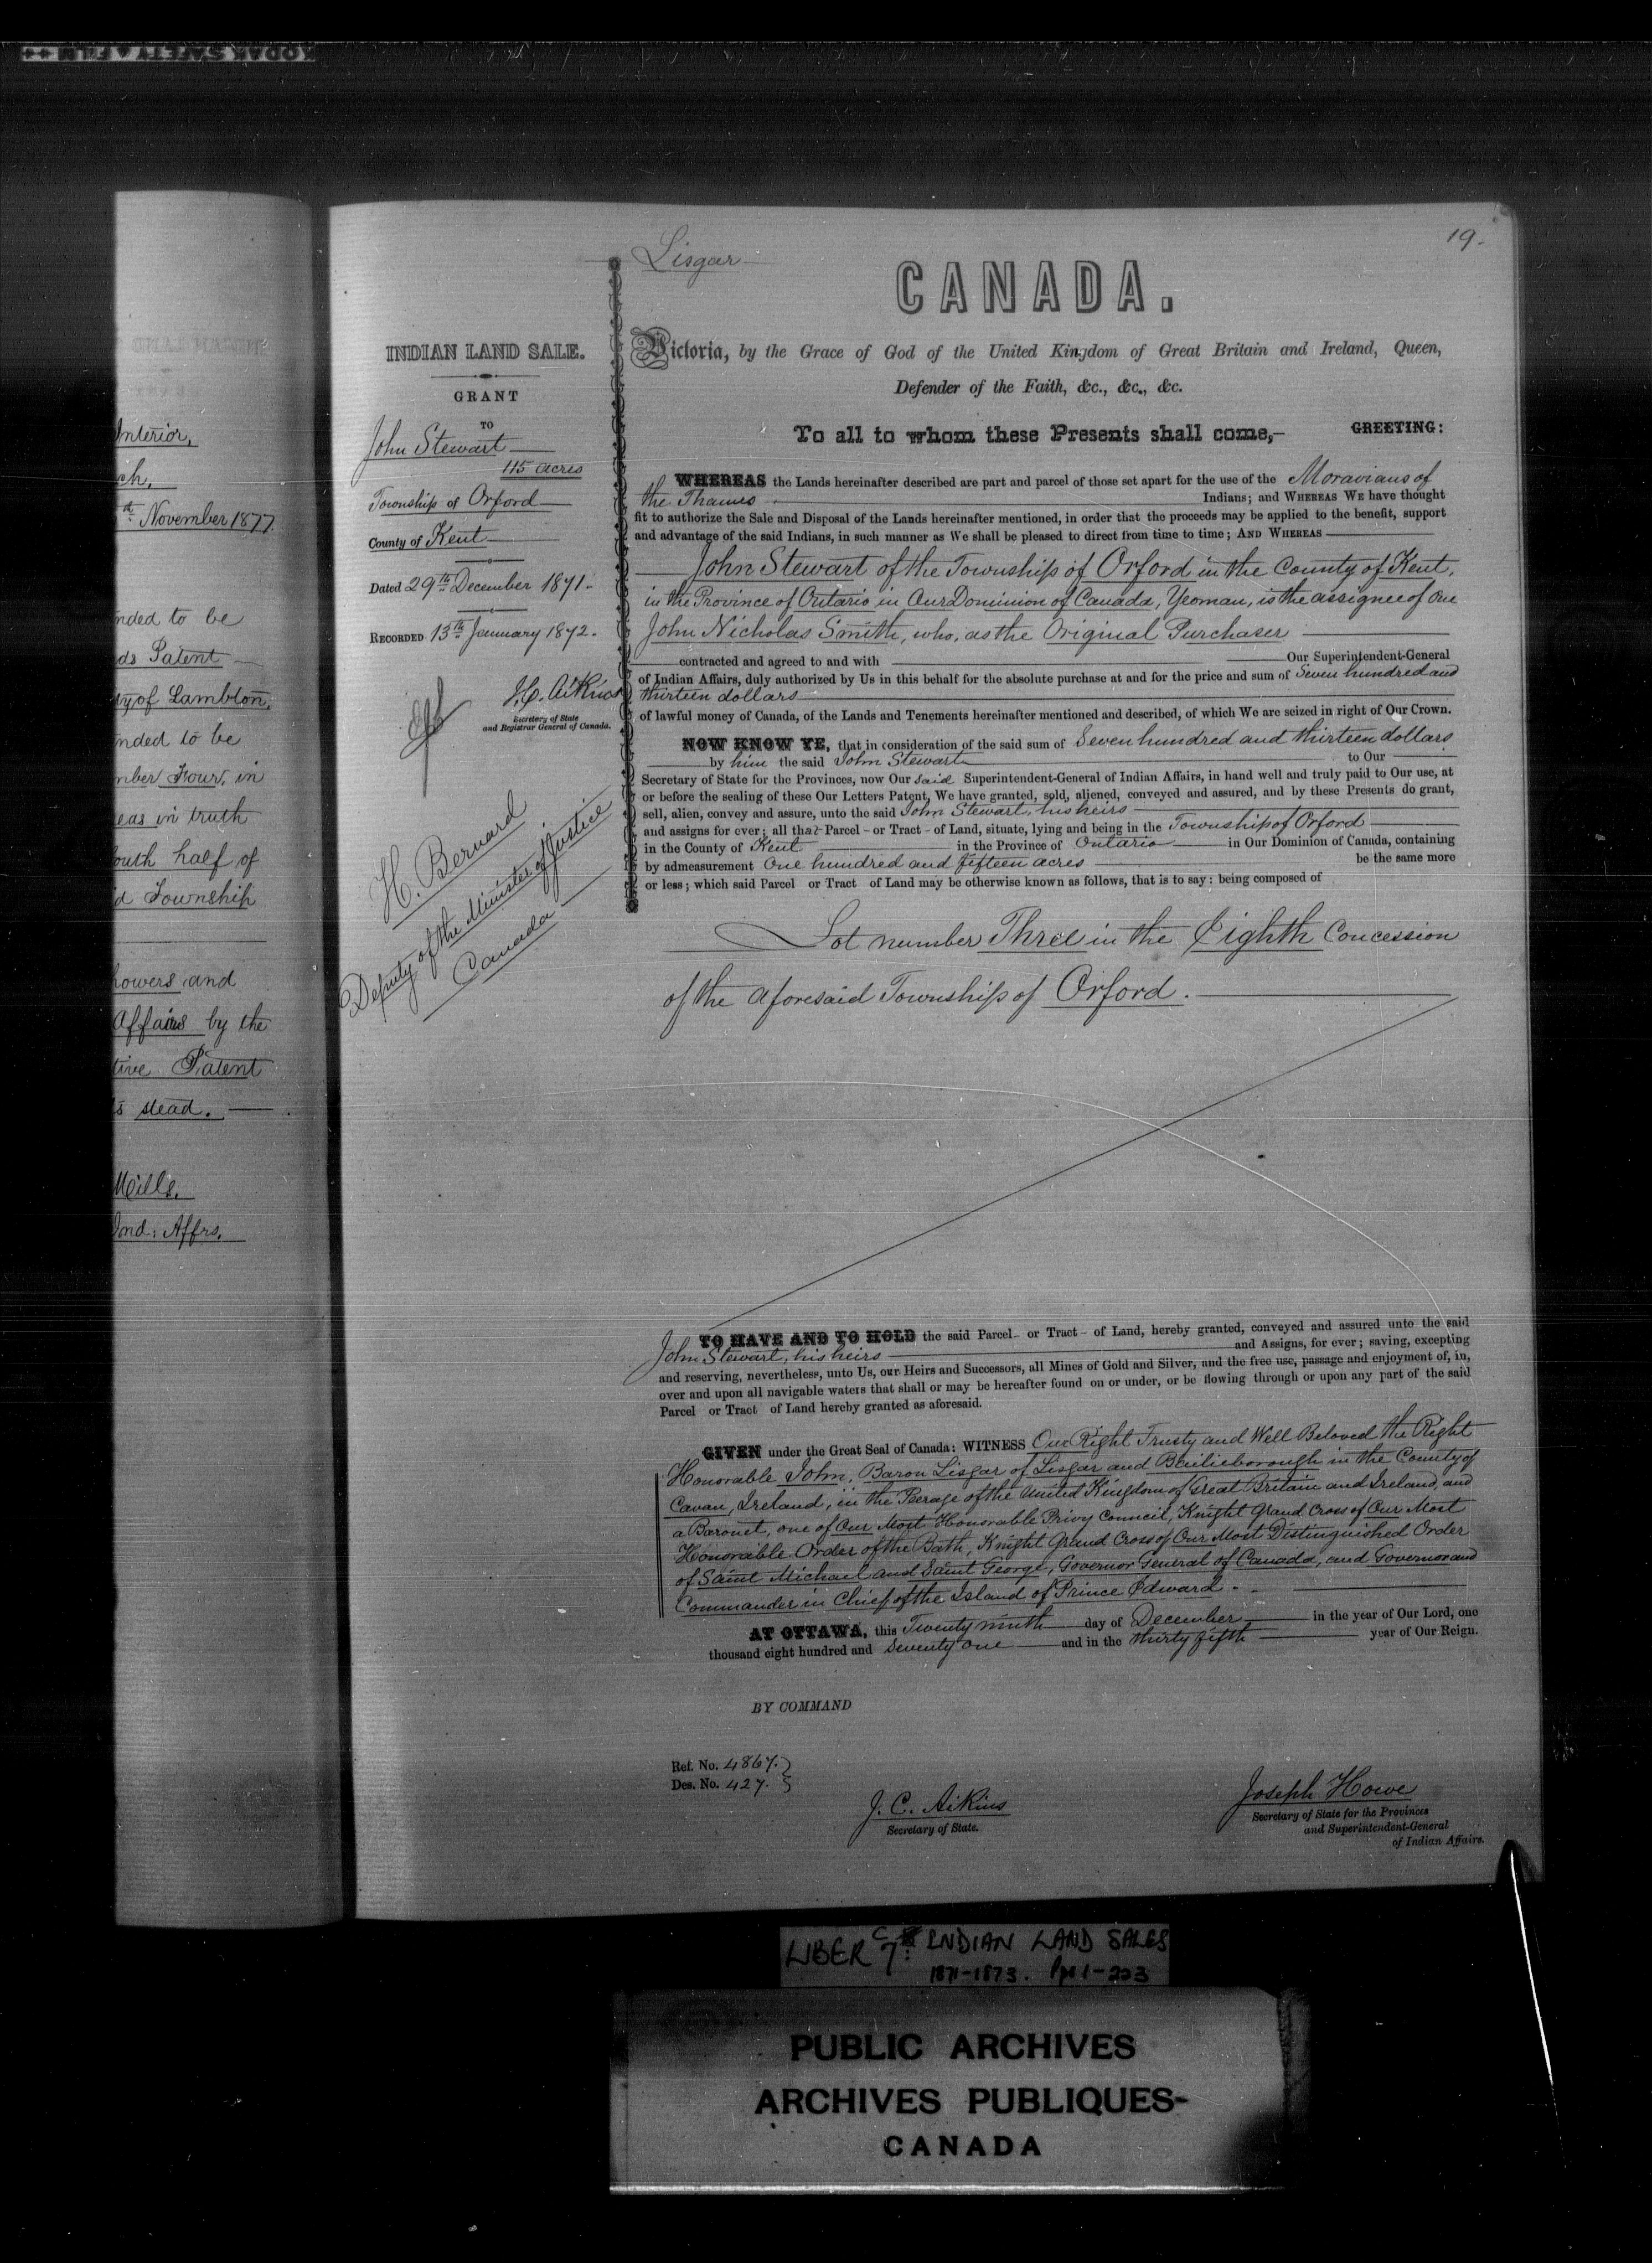 Interior,
ch,
th November 1877.
nded to be
ds Patent
ty of Lambton,
nded to be
mber Four, in
eas in truth
outh half of
d Township
owers and
Affairs by the
tive Patent
s stead.
Mills.
Ind: Affrs.
19.
Lisgar
CANADA.
INDIAN LAND SALE.
GRANT
TO
John Stewart
115 acres
Township of Orford
County of Kent
Dated 29th December 1871.
RECORDED 13th January 1872.
J.C. Aikins
Secretary of State
and Registrar General of Canada.
H. Bernard
Deputy of the Minister of Justice
Canada
Victoria, by the Grace of God of the United Kingdom of Great Britain and Ireland, Queen,
Defender of the Faith, &c., &c., &c.
To all to whom these Presents shall come,— GREETING:
WHEREAS the Lands hereinafter described are part and parcel of those set apart for the use of the Moravians of
the Thames Indians; and WHEREAS WE have thought
fit to authorize the Sale and Disposal of the Lands hereinafter mentioned, in order that the proceeds may be applied to the benefit, support
and advantage of the said Indians, in such manner as We shall be pleased to direct from time to time; AND WHEREAS
John Stewart of the Township of Orford in the County of Kent,
in the Province of Ontario in Our Dominion of Canada, Yeoman, is the assignee of one
John Nicholas Smith, who, as the Original Purchaser
contracted and agreed to and with Our Superintendent-General
of Indian Affairs, duly authorized by Us in this behalf for the absolute purchase at and for the price and sum of Seven hundred and
thirteen dollars
of lawful money of Canada, of the Lands and Tenements hereinafter mentioned and described, of which We are seized in right of Our Crown.
NOW KNOW YE, that in consideration of the said sum of Seven hundred and thirteen dollars
by him the said John Stewart to Our
Secretary of State for the Provinces, now Our said Superintendent-General of Indian Affairs, in hand well and truly paid to Our use, at
or before the sealing of these Our Letters Patent, We have granted, sold, aliened, conveyed and assured, and by these Presents do grant,
sell, alien, convey and assure, unto the said John Stewart, his heirs
and assigns for ever; all that Parcel - or Tract - of Land, situate, lying and being in the Township of Orford
in the County of Kent in the Province of Ontario in Our Dominion of Canada, containing
by admeasurement One hundred and fifteen acres be the same more
or less; which said Parcel or Tract of Land may be otherwise known as follows, that is to say: being composed of
Lot number Three in the Eighth Concession
of the aforesaid Township of Orford.
TO HAVE AND TO HOLD the said Parcel - or Tract - of Land, hereby granted, conveyed and assured unto the said
John Stewart, his heirs and Assigns, for ever; saving, excepting
and reserving, nevertheless, unto Us, our Heirs and Successors, all Mines of Gold and Silver, and the free use, passage and enjoyment of, in,
over and upon all navigable waters that shall or may be hereafter found on or under, or be flowing through or upon any part of the said
Parcel or Tract of Land hereby granted as aforesaid.
GIVEN under the Great Seal of Canada: WITNESS Our Right Trusty and Well Beloved the Right
Honorable John, Baron Lisgar of Lisgar and Bailieborough in the County of
Cavan, Ireland, in the Peerage of the United Kingdom of Great Britain and Ireland, and
a Baronet, one of Our Most Honorable Privy Council, Knight Grand Cross of Our Most
Honorable Order of the Bath, Knight Grand Cross of Our Most Distinguished Order
of Saint Michael and Saint George, Governor General of Canada, and Governor and
Commander in Chief of the Island of Prince Edward.
AT OTTAWA, this Twenty ninth day of December in the year of Our Lord, one
thousand eight hundred and seventy one and in the thirty fifth year of Our Reign.
BY COMMAND
Ref. No. 4867.
Des. No. 427.
J. C. Aikins
Secretary of State.
Joseph Howe
Secretary of State for the Provinces
and Superintendent-General
of Indian Affairs.
LIBER C7: INDIAN LAND SALES
1871-1873. Pps 1-223
PUBLIC ARCHIVES
ARCHIVES PUBLIQUES-
CANADA